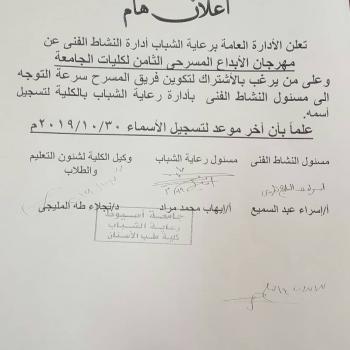 اعلان هام
تعلن الأدارة العامة برعاية الشباب أدارة النشاط الفنى عن
مهرجان الأبداع المسرحى الثامن لكليات الجامعة
وعلى من يرغب بالأشتراك لتكوين فريق المسرح سرعة التوجه
الى مسئول النشاط الفنى بأدارة رعاية الشباب بالكلية لتسجيل
أسمه.
علماً بأن أخر موعد لتسجيل الأسماء ٢٠١٩/١٠/٣٠م
مسئول النشاط الفنى مسئول رعاية الشباب وكيل الكلية لشئون التعليم
والطلاب
أ/إسراء عبد السميع أ/إيهاب محمد مراد د/نجلاء طه المليجى
جامعة أسيوط
رعاية الشباب
كلية طب الأسنان